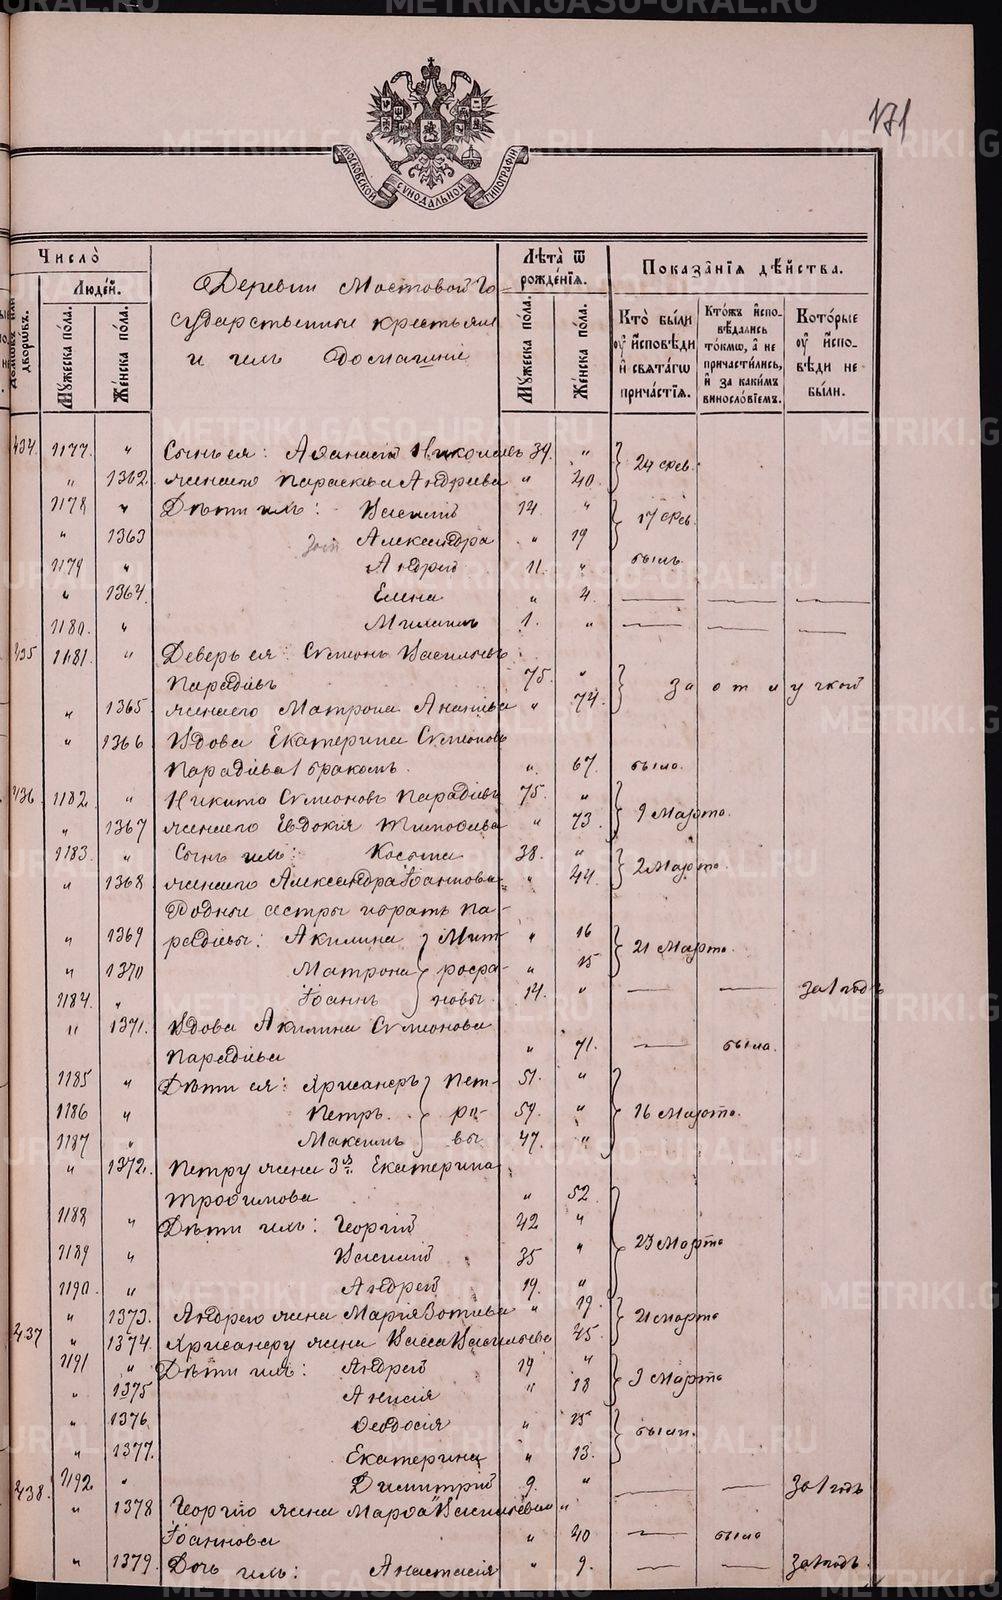 171
МОСКОВСКОЙ СѴНОДАЛЬНОЙ ТИПОГРАФІИ
Число̀
Людéй.
Мꙋжеска пóла.
Жéнска пóла.
Деревни Мостовой Го-
сударственные крестьяне
и ихъ домашніе
Лѣта̀ ѿ рождéнїѧ.
Мꙋжеска пóла.
Жéнска пóла.
Показа́нїѧ дѣ́йства.
Кто̀ бы́ли ᲂу҆ и҆сповѣди и҆ свѧта́гѡ прича́стїѧ.
Кто́жъ и҆спо-вѣдались то́кмѡ, а҆ не причасти́лись, и҆ за каки́мъ винослóвїемъ.
Котóрые ᲂу҆ и҆спо-вѣди не бы́ли.
434. 1177. " Сынъ ея: Аѳанасій Николаевъ 39. " 24 фев.
" 1362. жена его Параскева Андреева " 40.
1178 " Дѣти ихъ: Василій 14 " 17 фев.
" 1363 Александра " 19
1179 " Андрей 11. " былъ.
" 1364. Елена " 4.
1180. " Михаилъ 1. "
435 1181. " Деверь ея: Симеонъ Васильевъ
Парадѣевъ 75. " За отлучкой
" 1365. жена его Матрона Ананіева " 74.
" 1366. Вдова Екатерина Симеонова
Парадѣева 1 бракомъ. " 67. была.
436. 1182. " Никита Симеоновъ Парадѣевъ 75. " 9 Марта.
" 1367 жена его Евдокія Тимоѳеева " 73.
1183. " Сынъ ихъ: Косьма 38. " 2 Марта.
" 1368 жена его Александра Іоаннова " 44.
Родные сестры и братъ Па-
" 1369 радѣевы: Акилина Мит- " 16 21 Марта.
" 1370 Матрона рофа- " 15
1184. " Іоаннъ новы. 14. " за 1 годъ
" 1371. Вдова Акилина Симеонова
Парадѣева " 71. была.
1185 " Дѣти ея: Хрисанѳъ Пет- 51. "
1186 " Петръ. ро- 59. " 16 Марта.
1187 " Максимъ вы 47. "
" 1372. Петру жена 3я Екатерина
Троѳимова " 52.
1188 " Дѣти ихъ: Георгій 42 "
1189 " Василій 35 " 23 Марта
1190. " Андрей 19. "
" 1373. Андрею жена Марія Зотиева " 19. 21 марта
437 " 1374. Хрисанѳу жена Васса Васильева 45.
1191 " Дѣти ихъ: Андрей 19 " 9 Марта
" 1375 Анисія " 18
" 1376. Ѳеодосія " 15 были.
" 1377. Екатерина " 13.
438. 1192. " Димитрій 9. " за 1 годъ
" 1378 Георгію жена Марѳа Васильева "
Іоаннова " 40 была
" 1379. Дочь ихъ: Анастасія " 9. за 1 годъ.
METRIKI.GASO-URAL.RU